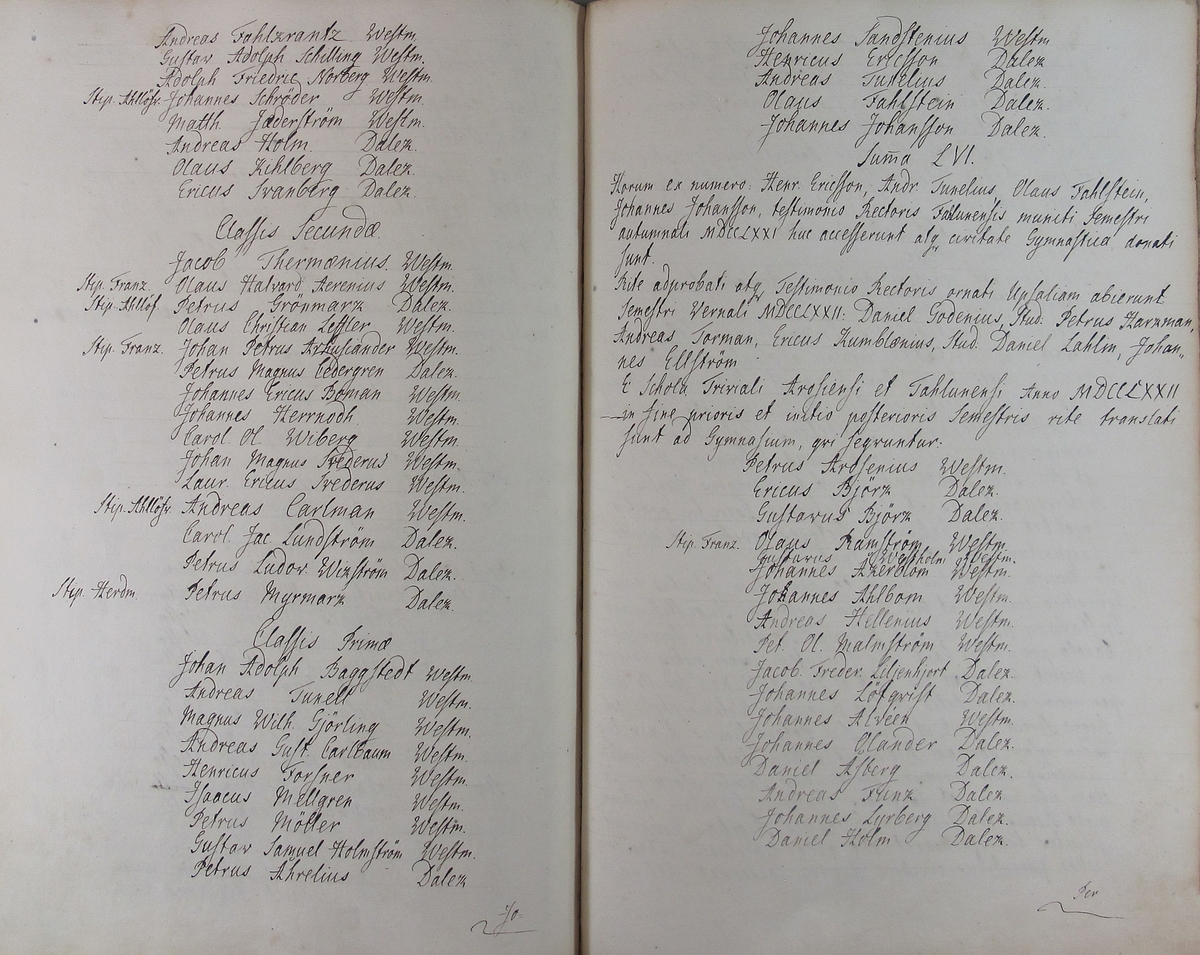 Andreas Fahlkrantz Westm.
Gustav Adolph Schilling Westm.
Adolph Friedric Norberg Westm.
Stip. Ahllöfv. Johannes Schröder Westm.
Matth. Jäderström Westm.
Andreas Holm. Dalek.
Olaus Kihlberg Dalek.
Ericus Svanberg Dalek.
Classis Secundæ
Jacob Thermænius. Westm.
Stip. Franz. Olaus Halvard Aerenius Westm.
Stip. Ahllöf. Petrus Grönmark Dalek.
Olaus Christian Leffler Westm.
Stip. Franz. Johan Petrus Arhusiander Westm.
Petrus Magnus Cedergren Dalek.
Johannes Ericus Boman Westm.
Johannes Hernodh Westm.
Carol. Ol. Wiberg Westm.
Johan Magnus Svederus Westm.
Laur. Ericus Svederus Westm.
Stip. Ahllöfv. Andreas Carlman Westm.
Carol. Jac. Lundström Dalek.
Petrus Ludov. Wikström Dalek.
Stip. Herdm. Petrus Myrmark Dalek.
Classis Primæ
Johan Adolph Baggstedt Westm.
Andreas Tunell Westm.
Magnus Wilh. Gjörling Westm.
Andreas Gust. Carlbaum Westm.
Henricus Forsner Westm.
Isaacus Mellgren Westm.
Petrus Möller Westm.
Gustav Samuel Holmström Westm.
Petrus Ahrelius Dalek
Jo=
Johannes Sandstenius Westm
Henricus Ericsson Dalek
Andreas Tunelius Dalek.
Olaus Fahlstein Dalek.
Johannes Johansson Dalek.
Sum̄a LVI.
Horum ex numero: Henr. Ericsson, Andr. Tunelius, Olaus Fahlstein,
Johannes Johansson, testimonio Rectoris Fahlunensis muniti Semestri
autumnali MDCCLXXI huc accesserunt atq; civitate Gymnastica donati
sunt.
Rite adprobati atq; Testimonio Rectoris ornati Upsaliam abierunt
Semestri Vernali MDCCLXXII: Daniel Godenius, Stud. Petrus Harkman,
Andreas Torman, Ericus Kumblænius, Stud. Daniel Lahlin, Johan„
nes Ellström
E Schola Triviali Arosiensi et Fahlunensi Anno MDCCLXXII
in fine prioris et initio posterioris Semestris rite translati
sunt ad Gymnasium, qvi seqvuntur:
Petrus Arosenius Westm.
Ericus Björk Dalek.
Gustavus Björk Dalek.
Stip. Franz. Olaus Ramström Westm.
Gustavus Westholm Westm.
Johannes Akerblom Westm.
Johannes Ahlbom Westm.
Andreas Hellenius Westm.
Pet. Ol. Malmström Westm.
Jacob. Freder. Liljenhjort Dalek.
Johannes Löfqvist Dalek.
Johannes Alveen Westm.
Johannes Olander Dalek.
Daniel Asberg Dalek.
Andreas Funk Dalek
Johannes Lyrberg Dalek.
Daniel Holm Dalek.